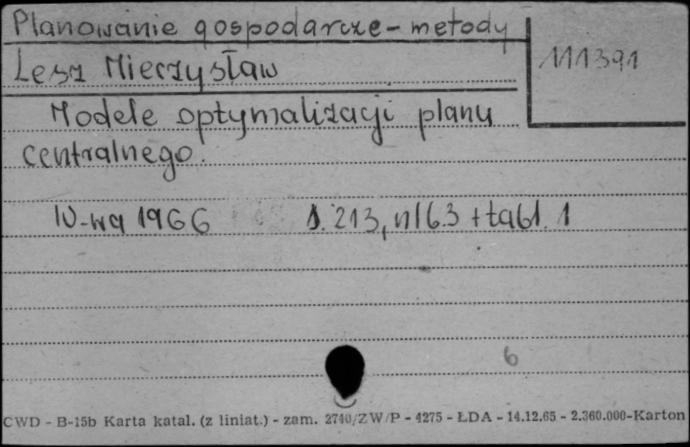 Planowanie gospodarcze - metody
111391
Lesz Mieczysław
Modele optymalizacji planu
centralnego.
W-wa 1966 s. 213, nlb.3 + tabl. 1
6
CWD - B-15b Karta katal. (z liniat.) - zam. 2740/ZW/P - 4275 - ŁDA - 14.12.65 - 2.360.000-Karton